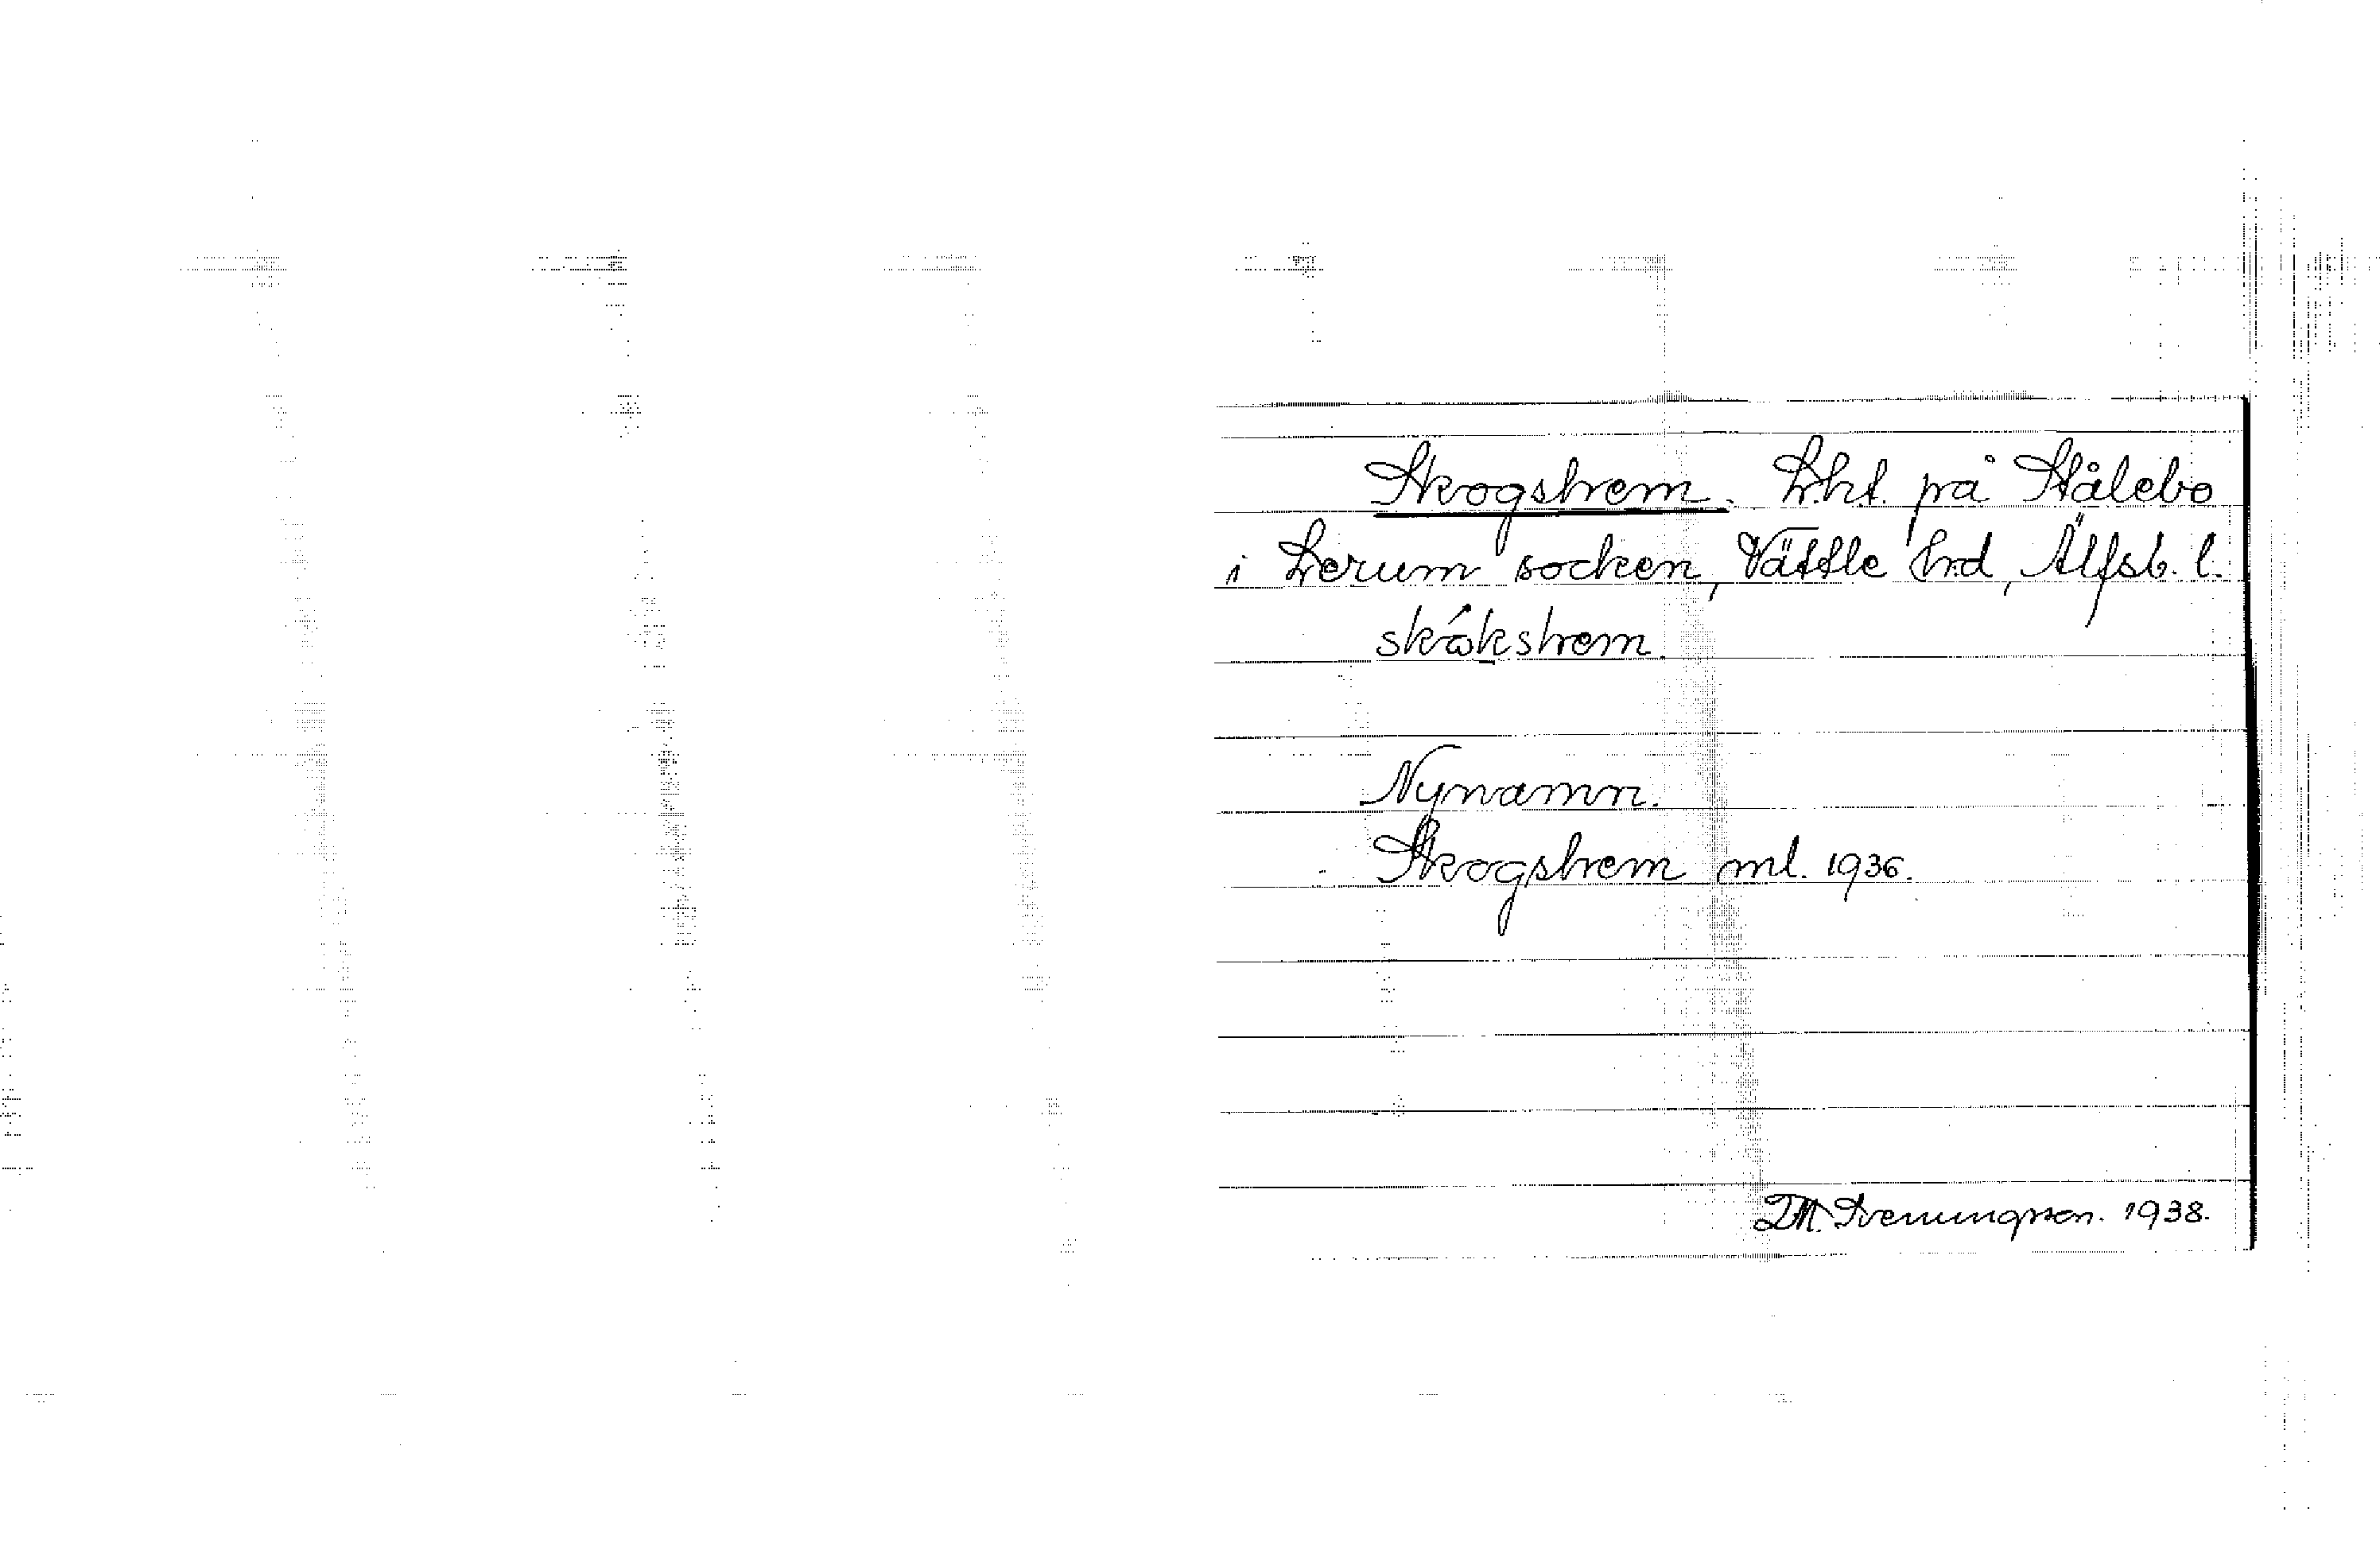 Skogshem. Lht. på Stålebo
i Lerum socken, Vättle hrd, Älfsb. l.
skókshem
Nynamn.
Skogshem ml. 1936.
Svenungsson. 1938.